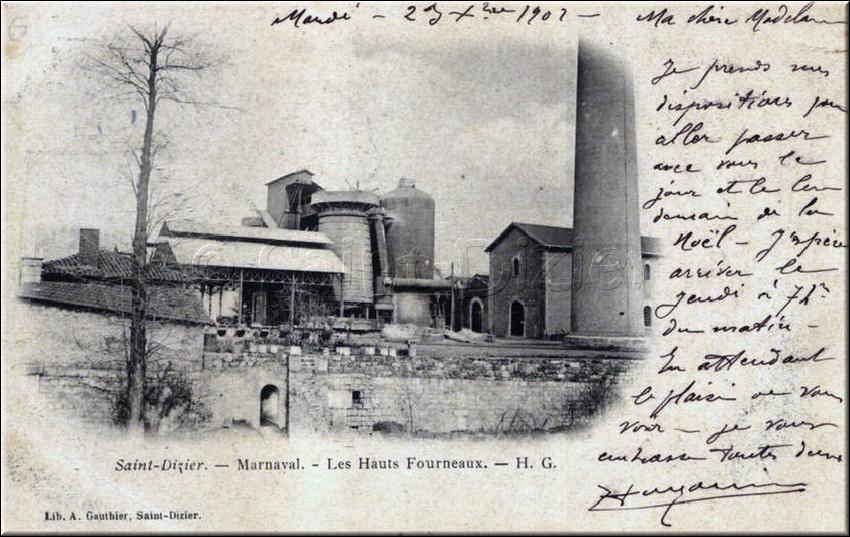 Mardi - 23 Xbre 1902 - Ma chère Madeleine
Je prends mes
dispositions pour
aller passer
avec vous le
jour et le len
demain de la
Noël - J'espère
arriver le
jeudi à 7h
du matin -
En attendant
le plaisir de vous
voir - je vous
embrasse toutes deux
Saint-Dizier. — Marnaval. - Les Hauts Fourneaux. — H. G.
Lib. A. Gauthier, Saint-Dizier.